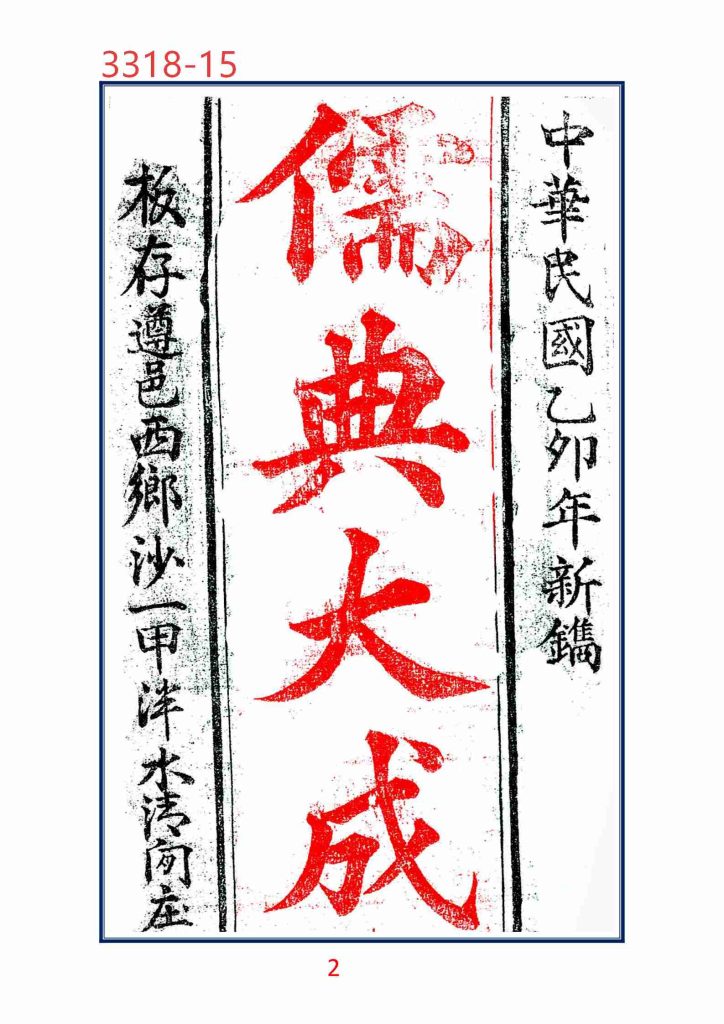 3318-15
中華民國乙卯年新鐫
儒典大成
板存遵邑西鄉沙一甲泮水清庄
2